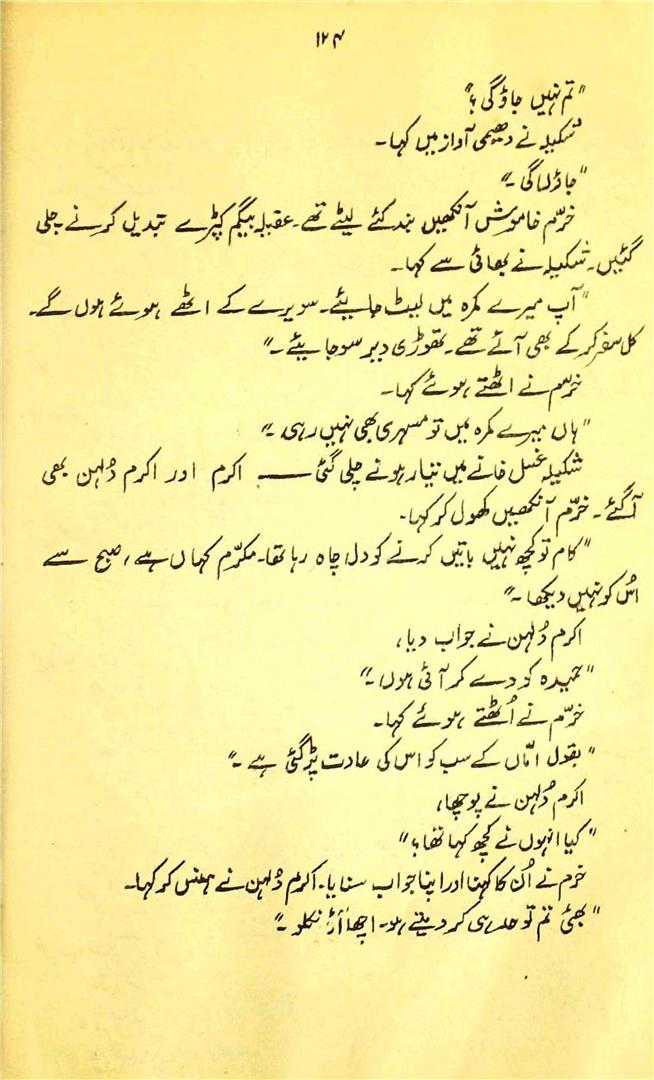 ۱۲۴
"تم نہیں جاؤگی؟"
شکیلہ نے دھیمی آواز میں کہا۔
"جاؤں گی۔"
خرّم خاموش آنکھیں بند کئے لیٹے تھے۔ عقیلہ بیگم کپڑے تبدیل کرنے چلی
گئیں۔ شکیلہ نے بھائی سے کہا۔
"آپ میرے کمرہ میں لیٹ جایئے۔ سویرے کے اٹھے ہوئے ہوں گے۔
کل سفر کر کے بھی آئے تھے۔ تھوڑی دیر سو جایئے۔"
خرّم نے اٹھتے ہوئے کہا۔
"ہاں میرے کمرہ میں تو مسہری بھی نہیں رہی۔"
شکیلہ غسل خانے میں تیار ہونے چلی گئی — اکرم اور اکرم دُلہن بھی
آگئے۔ خرّم آنکھیں کھول کر کہا۔
"کام تو کچھ نہیں باتیں کرنے کو دل چاہ رہا تھا۔ مکرّم کہاں ہے، صبح سے
اُس کو نہیں دیکھا۔"
اکرم دُلہن نے جواب دیا،
"حمیدہ کو دے کر آئی ہوں۔"
خرّم نے اُٹھتے ہوئے کہا۔
"بقول امّاں کے سب کو اس کی عادت پڑ گئی ہے۔"
اکرم دُلہن نے پوچھا،
"کیا انہوں نے کچھ کہا تھا؟"
خرم نے اُن کا کہنا اور اپنا جواب سنایا۔ اکرم دُلہن نے ہنس کر کہا۔
"بھئی تم تو حد ہی کر دیتے ہو۔ اچھا اُڑ نکلو۔"